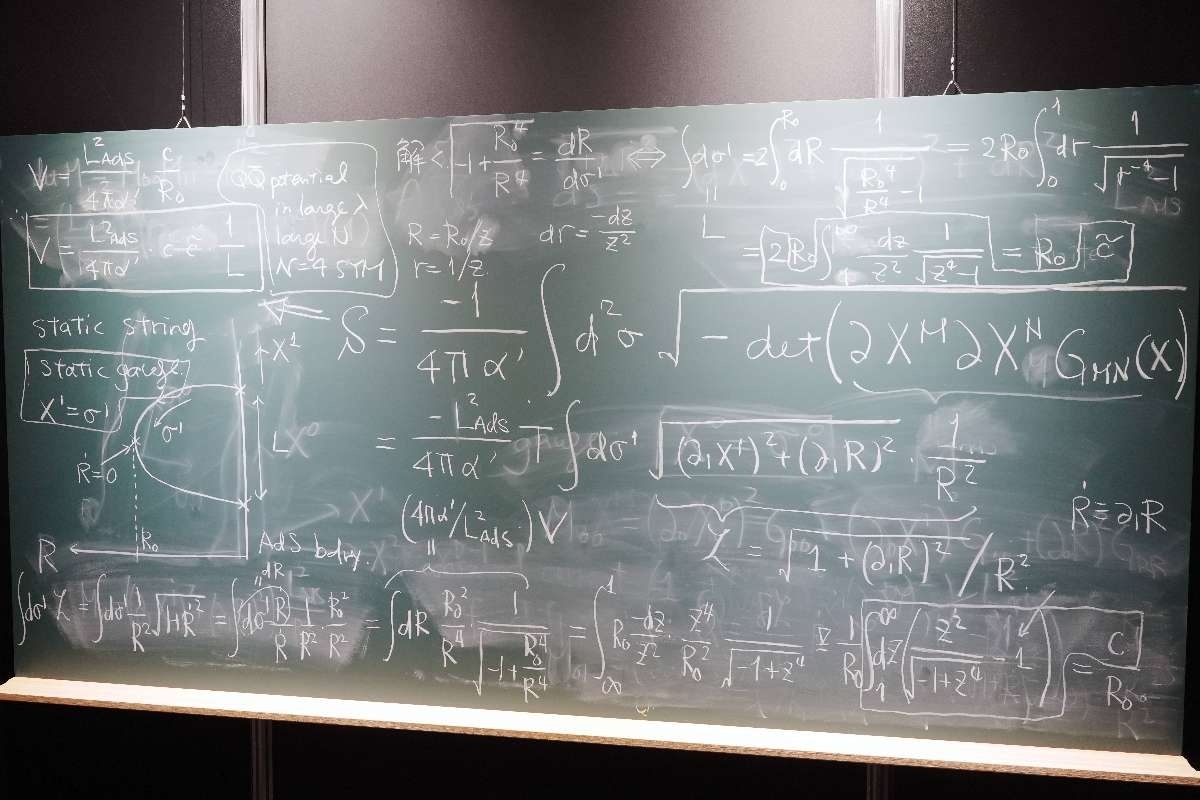 V = L²_AdS / 4πα' · c / R₀
V = L²_AdS / 4πα' · c · c̃ · 1 / L
QQ̄ potential
in large λ
large N
N=4 SYM
解 < √(-1 + R₀⁴/R⁴) = dR/dσ¹ ⇔ ∫dσ¹ = 2∫₀^R₀ dR 1/√(R₀⁴/R⁴ - 1) = 2R₀∫₀¹ dr 1/√(r⁻⁴-1)
R = R₀/z
r = 1/z
dr = -dz/z²
L = 2R₀ ∫ -dz/z² 1/√(z⁴-1) = R₀ c̃
static string
static gauge
X¹ = σ¹
σ¹
Ṙ=0
R₀
R
X¹
L
X⁰
AdS bdry.
S = -1/4πα' ∫ d²σ √(-det(∂X^M ∂X^N G_MN(X)))
= -L²_AdS/4πα' T ∫dσ¹ √((∂₁X¹)² + (∂₁R)²) · 1/R²
(4πα'/L²_AdS) V
L = √(1 + (∂₁R)²) / R²
Ṙ = ∂₁R
∫dσ¹ L = ∫dσ¹ 1/R² √(1+Ṙ²) = ∫dσ¹ Ṙ/Ṙ 1/R² R₀²/R² = ∫dR R₀²/R⁴ 1/√(-1 + R₀⁴/R⁴) = ∫_∞^1 R₀ -dz/z² z⁴/R₀² 1/√(-1+z⁴) = 1/R₀ ∫₁^∞ dz (z²/√(-1+z⁴) - 1) = c/R₀